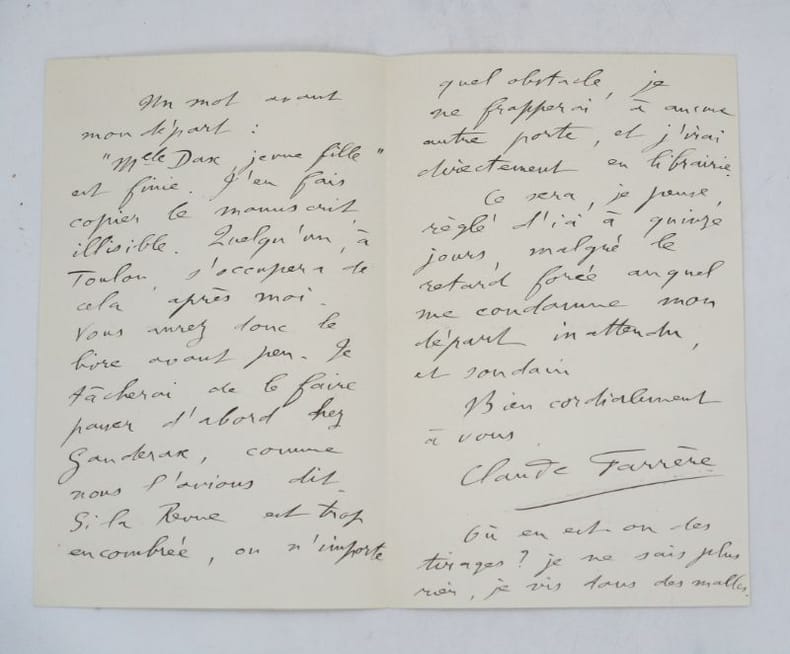 Un mot avant
mon départ :
"Melle Dax, jeune fille"
est finie. J'en fais
copier le manuscrit,
illisible. Quelqu'un, à
Toulon, s'occupera de
cela après moi.
Vous aurez donc le
livre avant peu. Je
tâcherai de le faire
passer d'abord chez
Ganderax, comme
nous l'avions dit.
Si la Revue est trop
encombrée, ou n'importe
quel obstacle, je
ne frapperai à aucune
autre porte, et j'irai
directement en librairie.
Ce sera, je pense,
règlé d'ici à quinze
jours, malgré le
retard forcé auquel
me condamne mon
départ inattendu,
et soudain
Bien cordialement
à vous
Claude Farrère
Où en est-on des
tirages ? je ne sais plus
rien, je vis dans des malles.